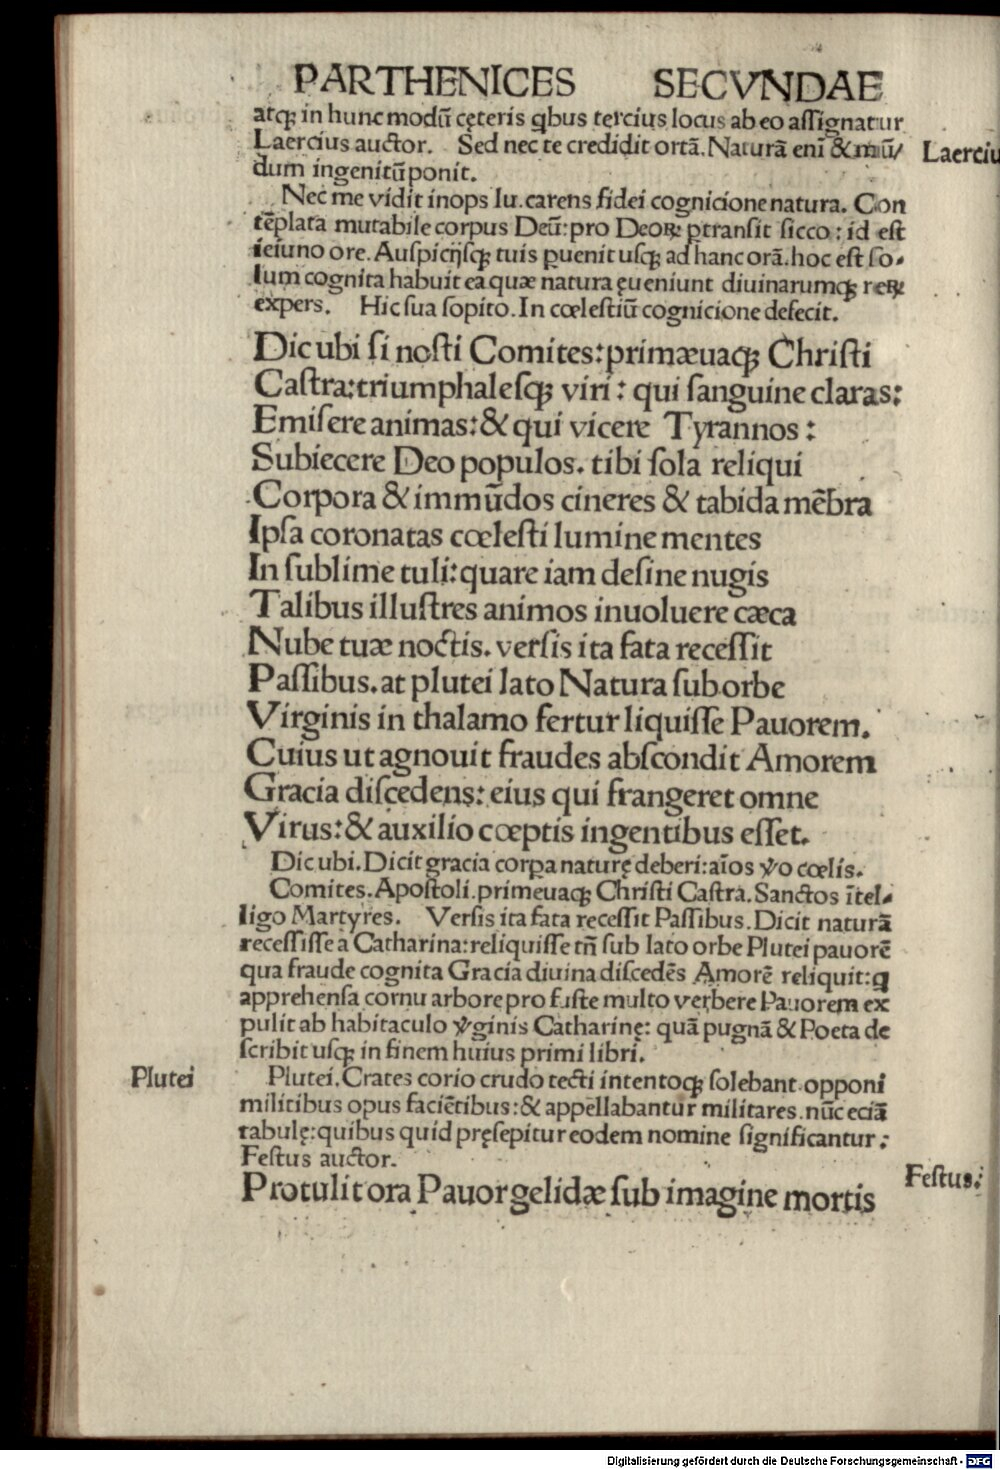 PARTHENICES SECVNDAE
atqꝫ in hunc modū cęteris qbus tercius locus ab eo assignatur
Laercius auctor. Sed nec te credidit ortā. Naturā enī & mū/
Laerciu
dum ingenitū ponit.
Nec me vidit inops Iu. carens fidei cognicione natura. Con
tēplata mutabile corpus Deū: pro Deoꝝ ꝑtransit sicco: id est
ieiuno ore. Auspicijsqꝫ tuis ꝑuenit usqꝫ ad hanc orā. hoc est so-
lum cognita habuit ea quæ natura ęueniunt diuinarumqꝫ reꝝ
expers. Hic sua sopito. In cœlestiū cognicione defecit.
Dic ubi si nosti Comites: primæuaqꝫ Christi
Castra: triumphalesqꝫ viri: qui sanguine claras:
Emisere animas: & qui vicere Tyrannos:
Subiecere Deo populos. tibi sola reliqui
Corpora & immūdos cineres & tabida mēbra
Ipsa coronatas cœlesti lumine mentes
In sublime tuli: quare iam desine nugis
Talibus illustres animos inuoluere cæca
Nube tuæ noctis. versis ita fata recessit
Passibus. at plutei lato Natura sub orbe
Virginis in thalamo fertur liquisse Pauorem.
Cuius ut agnouit fraudes abscondit Amorem
Gracia discedens: eius qui frangeret omne
Virus: & auxilio cœptis ingentibus esset.
Dic ubi. Dicit gracia corpa naturę deberi: aīos ꝟo cœlis.
Comites. Apostoli. primeuaqꝫ Christi Castra. Sanctos ītel-
ligo Martyres. Versis ita fata recessit Passibus. Dicit naturā
recessisse a Catharina: reliquisse tñ sub lato orbe Plutei pauorē
qua fraude cognita Gracia diuina discedēs Amorē reliquit: q
apprehensa cornu arbore pro fuste multo verbere Pauorem ex
pulit ab habitaculo ꝟginis Catharinę: quā pugnā & Poeta de
scribit usqꝫ in finem huius primi libri.
Plutei
Plutei. Crates corio crudo tecti intentoqꝫ solebant opponi
militibus opus faciētibus: & appellabantur militares. nūc eciā
tabulę: quibus quid pręsepitur eodem nomine significantur:
Festus auctor.
Festus:
Protulit ora Pauor gelidæ sub imagine mortis
Digitalisierung gefördert durch die Deutsche Forschungsgemeinschaft - DFG